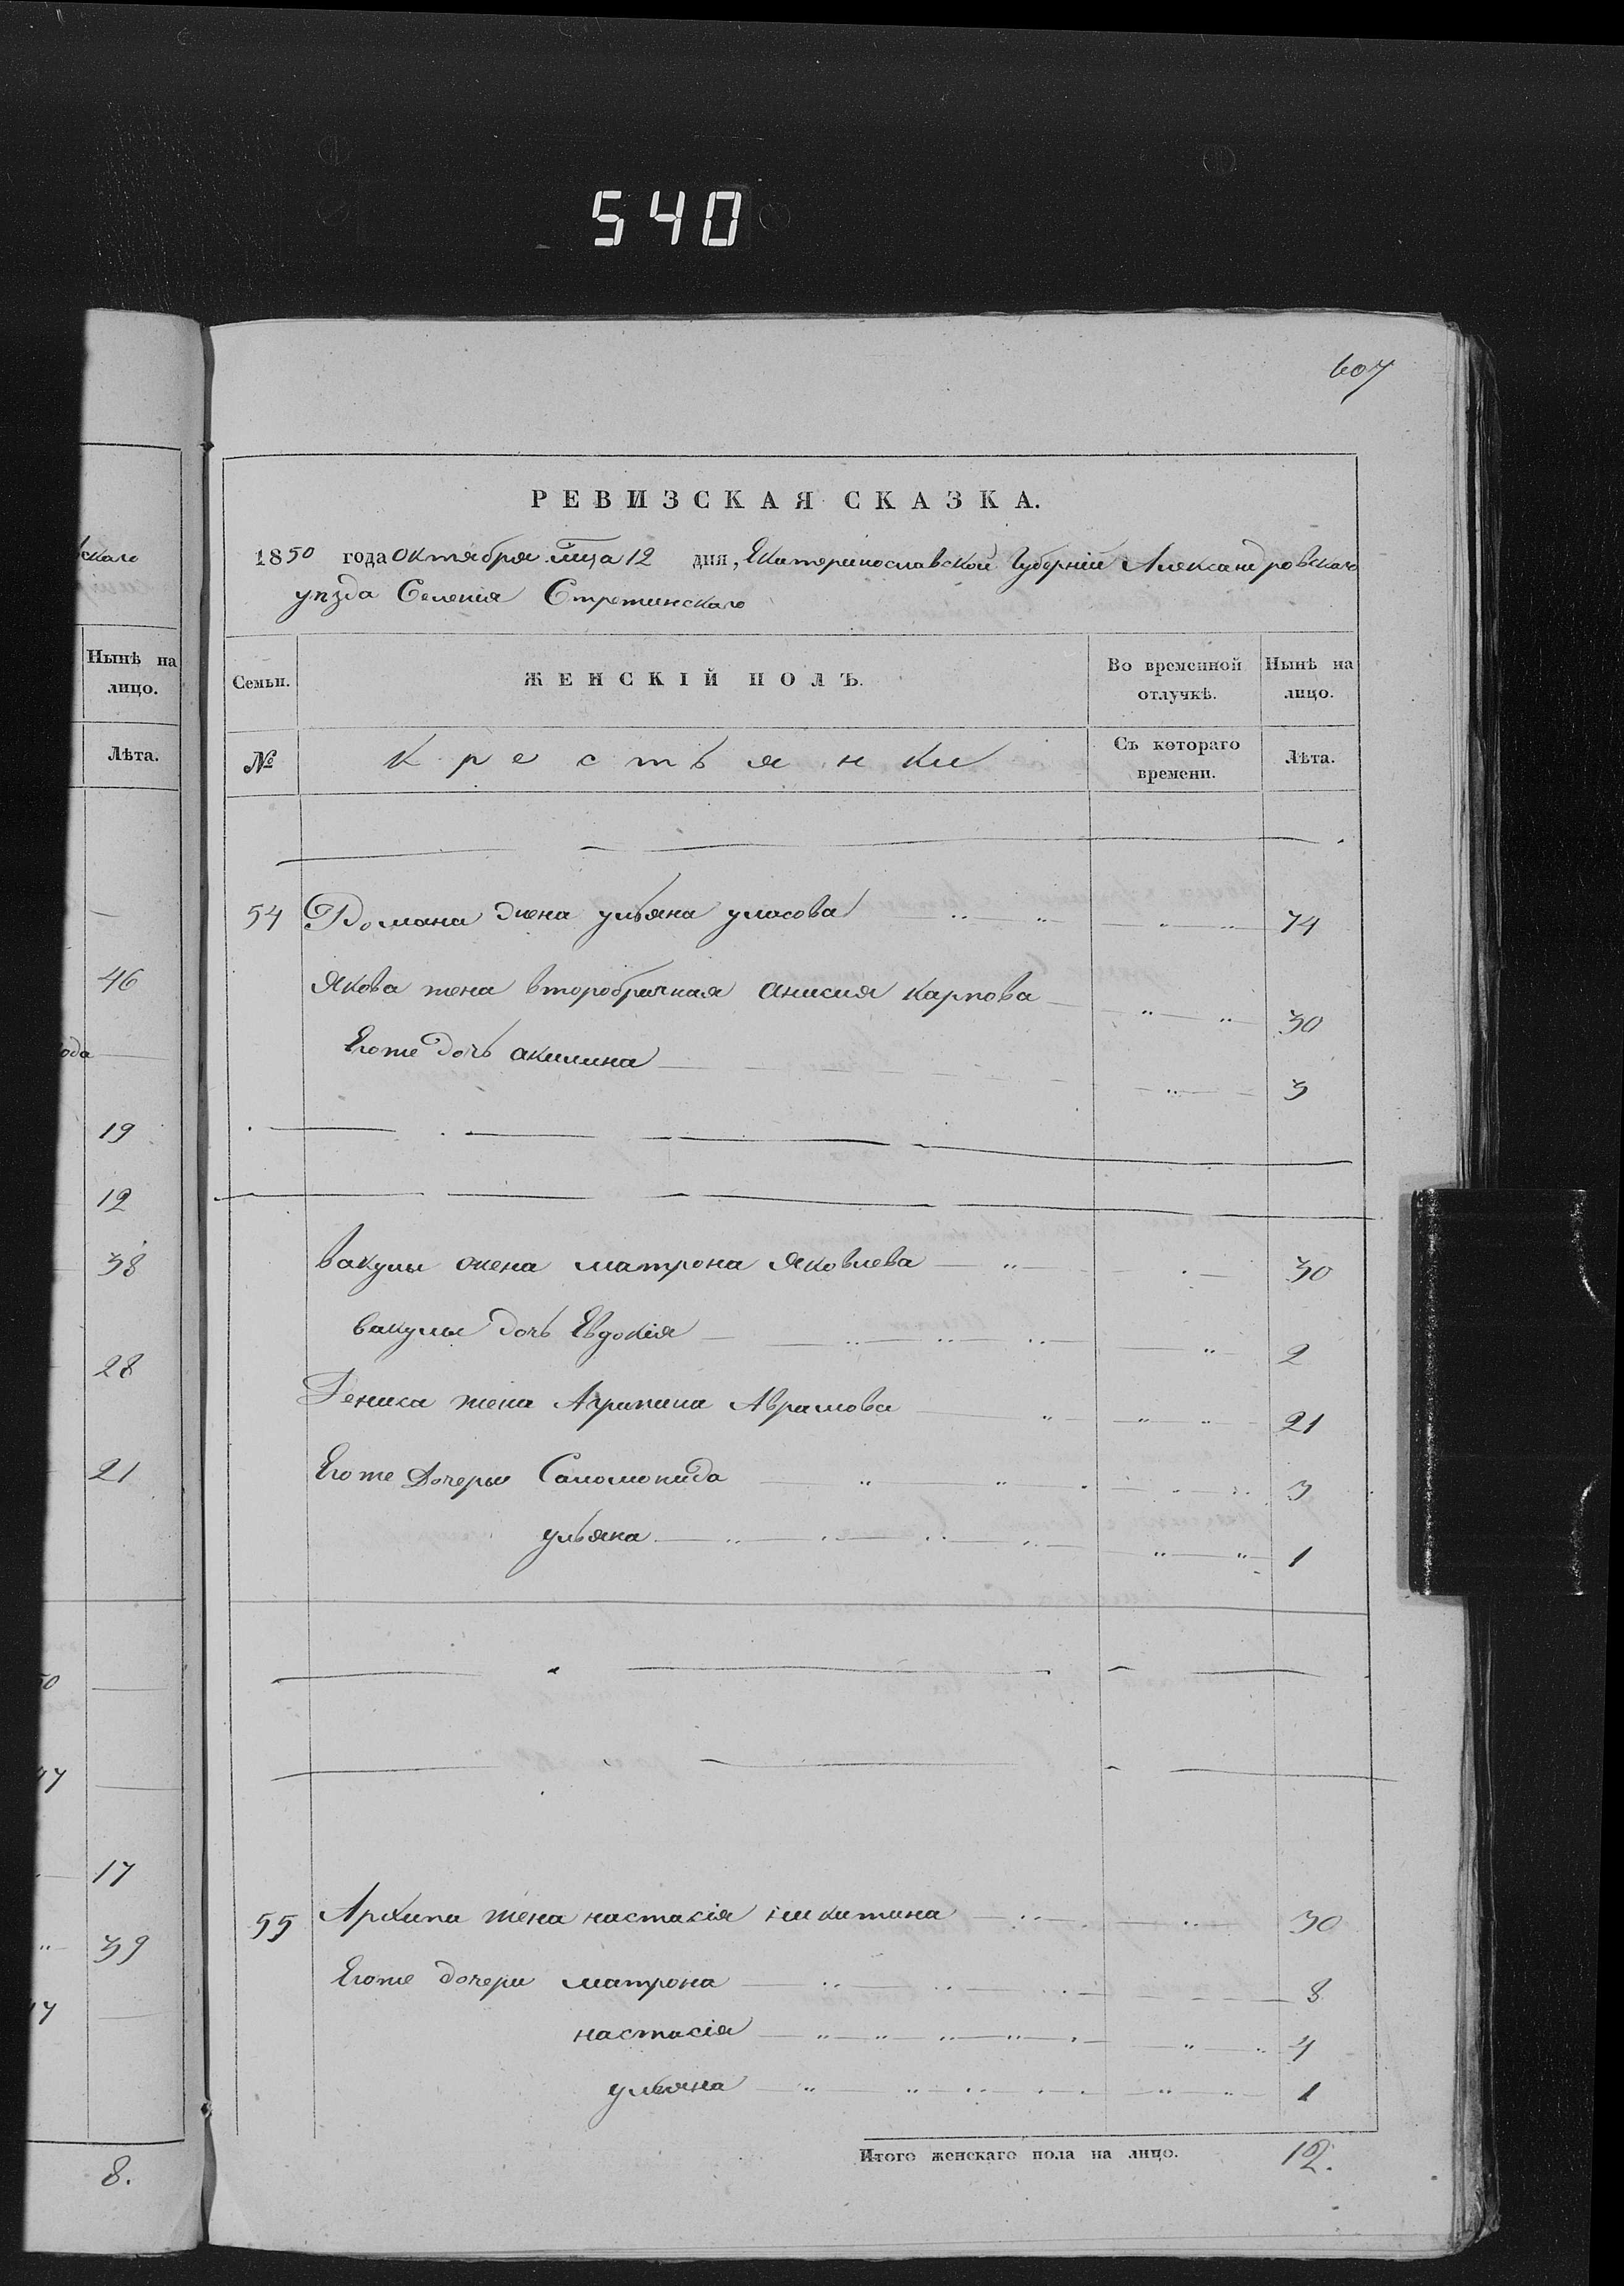 540
607
РЕВИЗСКАЯ СКАЗКА.
1850 года Октября мца 12 дня, Екатеринославской Губерніи Александровскаго
уѣзда Селенія Стретинскаго
Семьи. ЖЕНСКІЙ ПОЛЪ. Во временной отлучкѣ. Нынѣ на лицо.
№ крестьянки Съ котораго времени. Лѣта.
54 Романа жена ульяна уласова 74
Якова жена второбрачная анисия карпова 30
Егоже дочь акилина 3
вакулы жена матрона Яковлева 30
вакулы дочь Евдокія 2
жена Агрипина Аврамова 21
Егоже Дочеры Саломонида 3
ульяна 1
55 Архипа жена настасія никитина 30
Егоже дочери матрона 8
настасія 4
ульяна 1
Итого женскаго пола на лицо. 12.
скаго
Нынѣ на
лицо.
Лѣта.
46
ода
19
12
38
28
21
17
39
8.